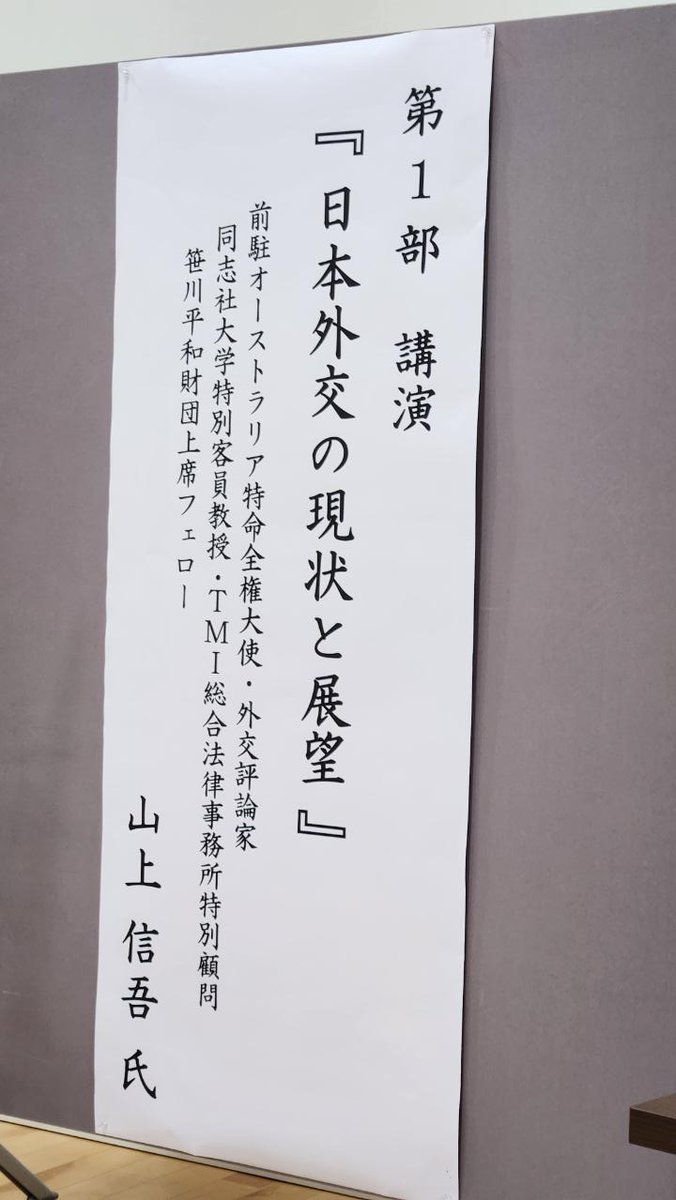 第1部 講演
『日本外交の現状と展望』
前駐オーストラリア特命全権大使・外交評論家
同志社大学特別客員教授・TMI総合法律事務所特別顧問
笹川平和財団上席フェロー
山上 信吾 氏